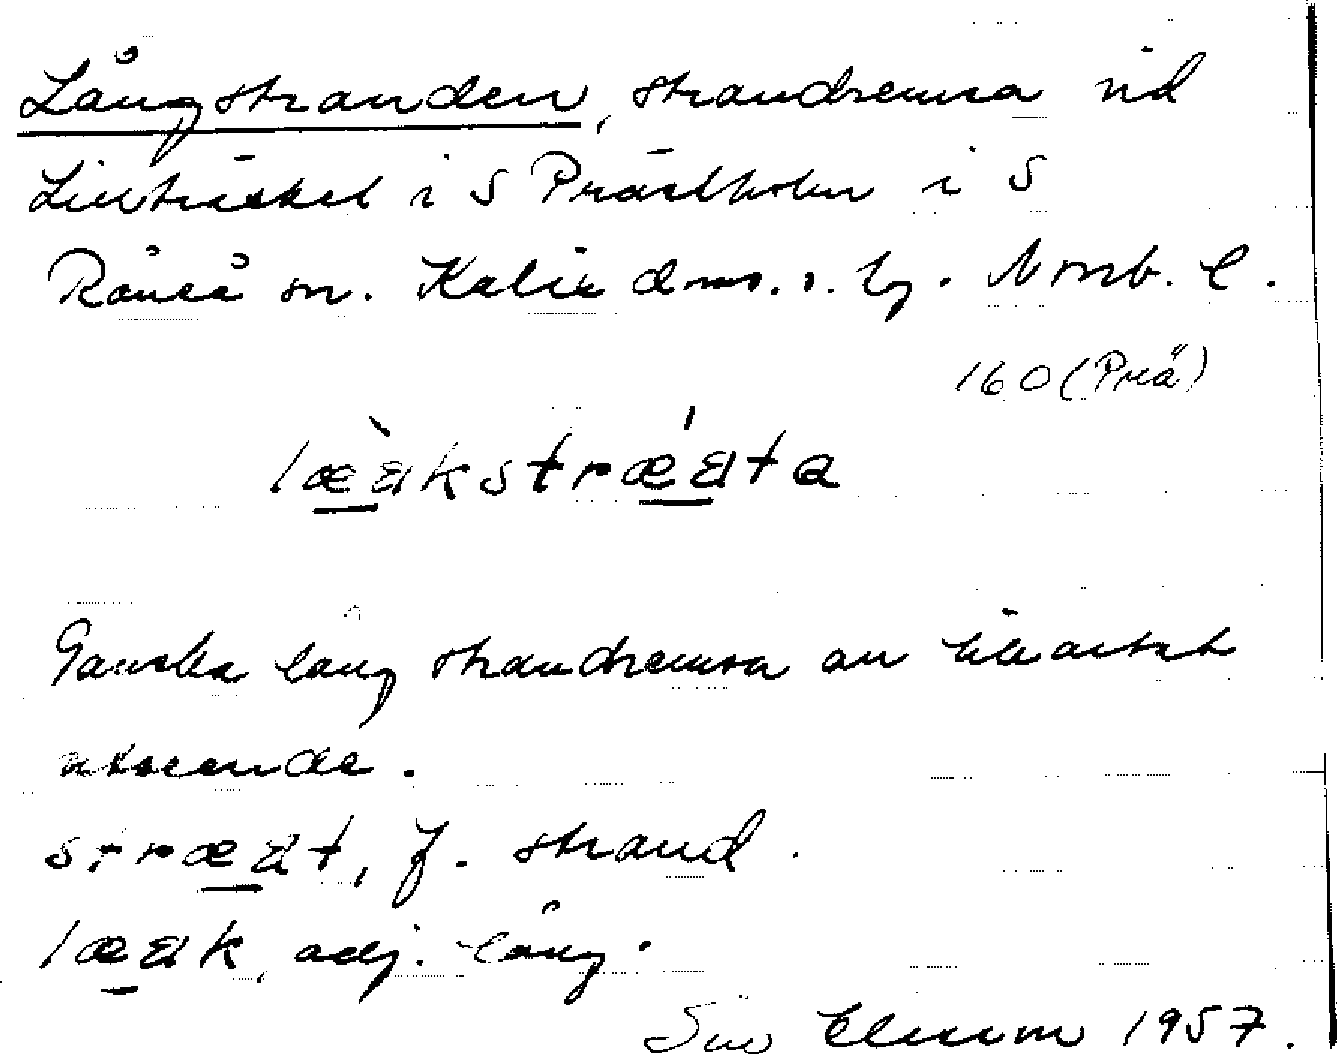 Långstranden, strandremsa vid
Livträsket i S Prästholm i S
Råneå sn. Kalix dms. s. bg. Norrb. l.
160 (Prä)
læakstræata
Ganska lång strandremsa av likartat
utseende.
stræat, f. strand.
læak, adj. lång.
Elenm 1957.